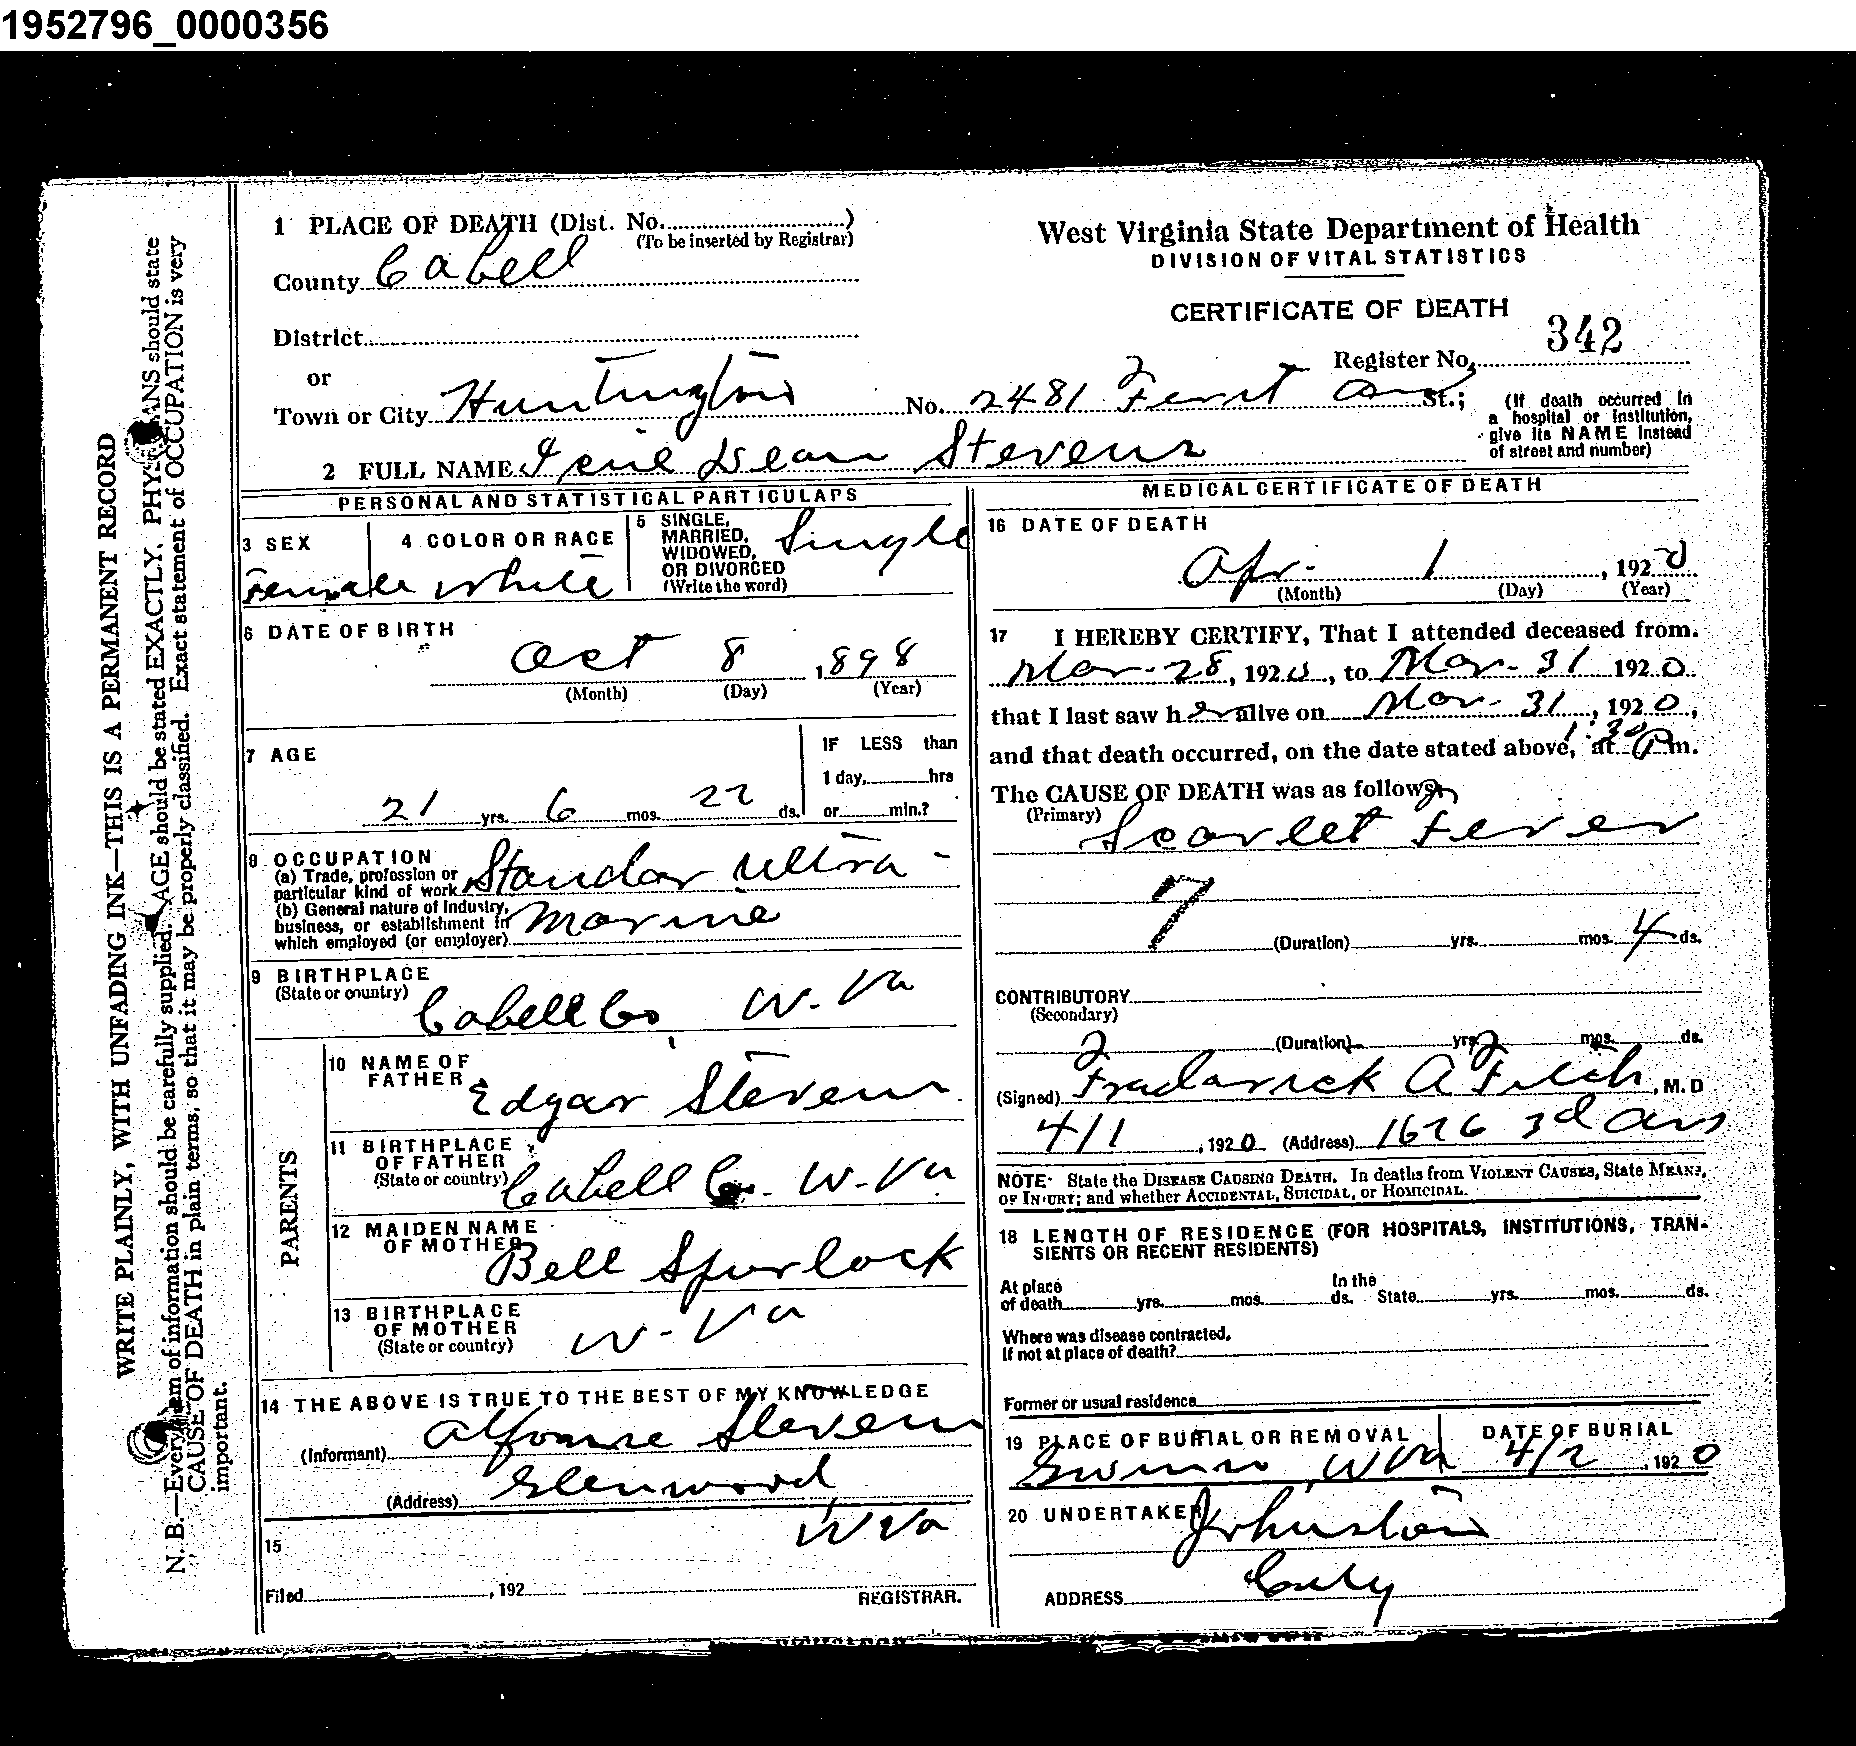 1952796_0000356
1 PLACE OF DEATH (Dist. No. )
(To be inserted by Registrar)
County Cabell
District
or
Town or City Huntington No. 2481 First Ave St.;
(If death occurred in
a hospital or institution,
give its NAME instead
of street and number)
West Virginia State Department of Health
DIVISION OF VITAL STATISTICS
CERTIFICATE OF DEATH
Register No. 342
2 FULL NAME Dean Stevens
PERSONAL AND STATISTICAL PARTICULARS
3 SEX
Female
4 COLOR OR RACE
White
5 SINGLE,
MARRIED,
WIDOWED,
OR DIVORCED
(Write the word)
Single
6 DATE OF BIRTH
Oct 8 , 898
(Month) (Day) (Year)
7 AGE
21 yrs. 6 mos. 22 ds.
IF LESS than
1 day, hrs
or min.?
8 OCCUPATION
(a) Trade, profession or
particular kind of work Standar Ultra-
(b) General nature of Industry,
business, or establishment in
which employed (or employer) Marine
9 BIRTHPLACE
(State or country) Cabell Co, W. Va
PARENTS
10 NAME OF
FATHER Edgar Stevens
11 BIRTHPLACE
OF FATHER
(State or country) Cabell Co. W. Va
12 MAIDEN NAME
OF MOTHER Bell Spurlock
13 BIRTHPLACE
OF MOTHER
(State or country) W. Va
14 THE ABOVE IS TRUE TO THE BEST OF MY KNOWLEDGE
(Informant) Stevens
(Address) Glenwood
W Va
15
Filed , 192
REGISTRAR.
MEDICAL CERTIFICATE OF DEATH
16 DATE OF DEATH
Apr. 1 , 1920
(Month) (Day) (Year)
17 I HEREBY CERTIFY, That I attended deceased from.
Mar. 28, 1920, to Mar. 31 1920
that I last saw her alive on Mar. 31, 1920,
and that death occurred, on the date stated above, at 1:30 P m.
The CAUSE OF DEATH was as follows:
(Primary) Scarlet Fever
7
(Duration) yrs. mos. 4 ds.
CONTRIBUTORY
(Secondary)
(Duration) yrs. mos. ds.
(Signed) Fredarick A Fitch, M. D
4/1 , 1920 (Address) 1626 3d Ave
NOTE- State the DISEASE CAUSING DEATH. In deaths from VIOLENT CAUSES, State MEANS
OF INJURY; and whether ACCIDENTAL, SUICIDAL, or HOMICIDAL.
18 LENGTH OF RESIDENCE (FOR HOSPITALS, INSTITUTIONS, TRAN-
SIENTS OR RECENT RESIDENTS)
At place
of death yrs. mos. ds.
In the
State yrs. mos. ds.
Where was disease contracted,
If not at place of death?
Former or usual residence
19 PLACE OF BURIAL OR REMOVAL
W Va
DATE OF BURIAL
4/2 , 1920
20 UNDERTAKER Johnston
ADDRESS City
WRITE PLAINLY, WITH UNFADING INK—THIS IS A PERMANENT RECORD
N. B.—Every item of information should be carefully supplied. AGE should be stated EXACTLY. PHYSICIANS should state
CAUSE OF DEATH in plain terms, so that it may be properly classified. Exact statement of OCCUPATION is very
important.